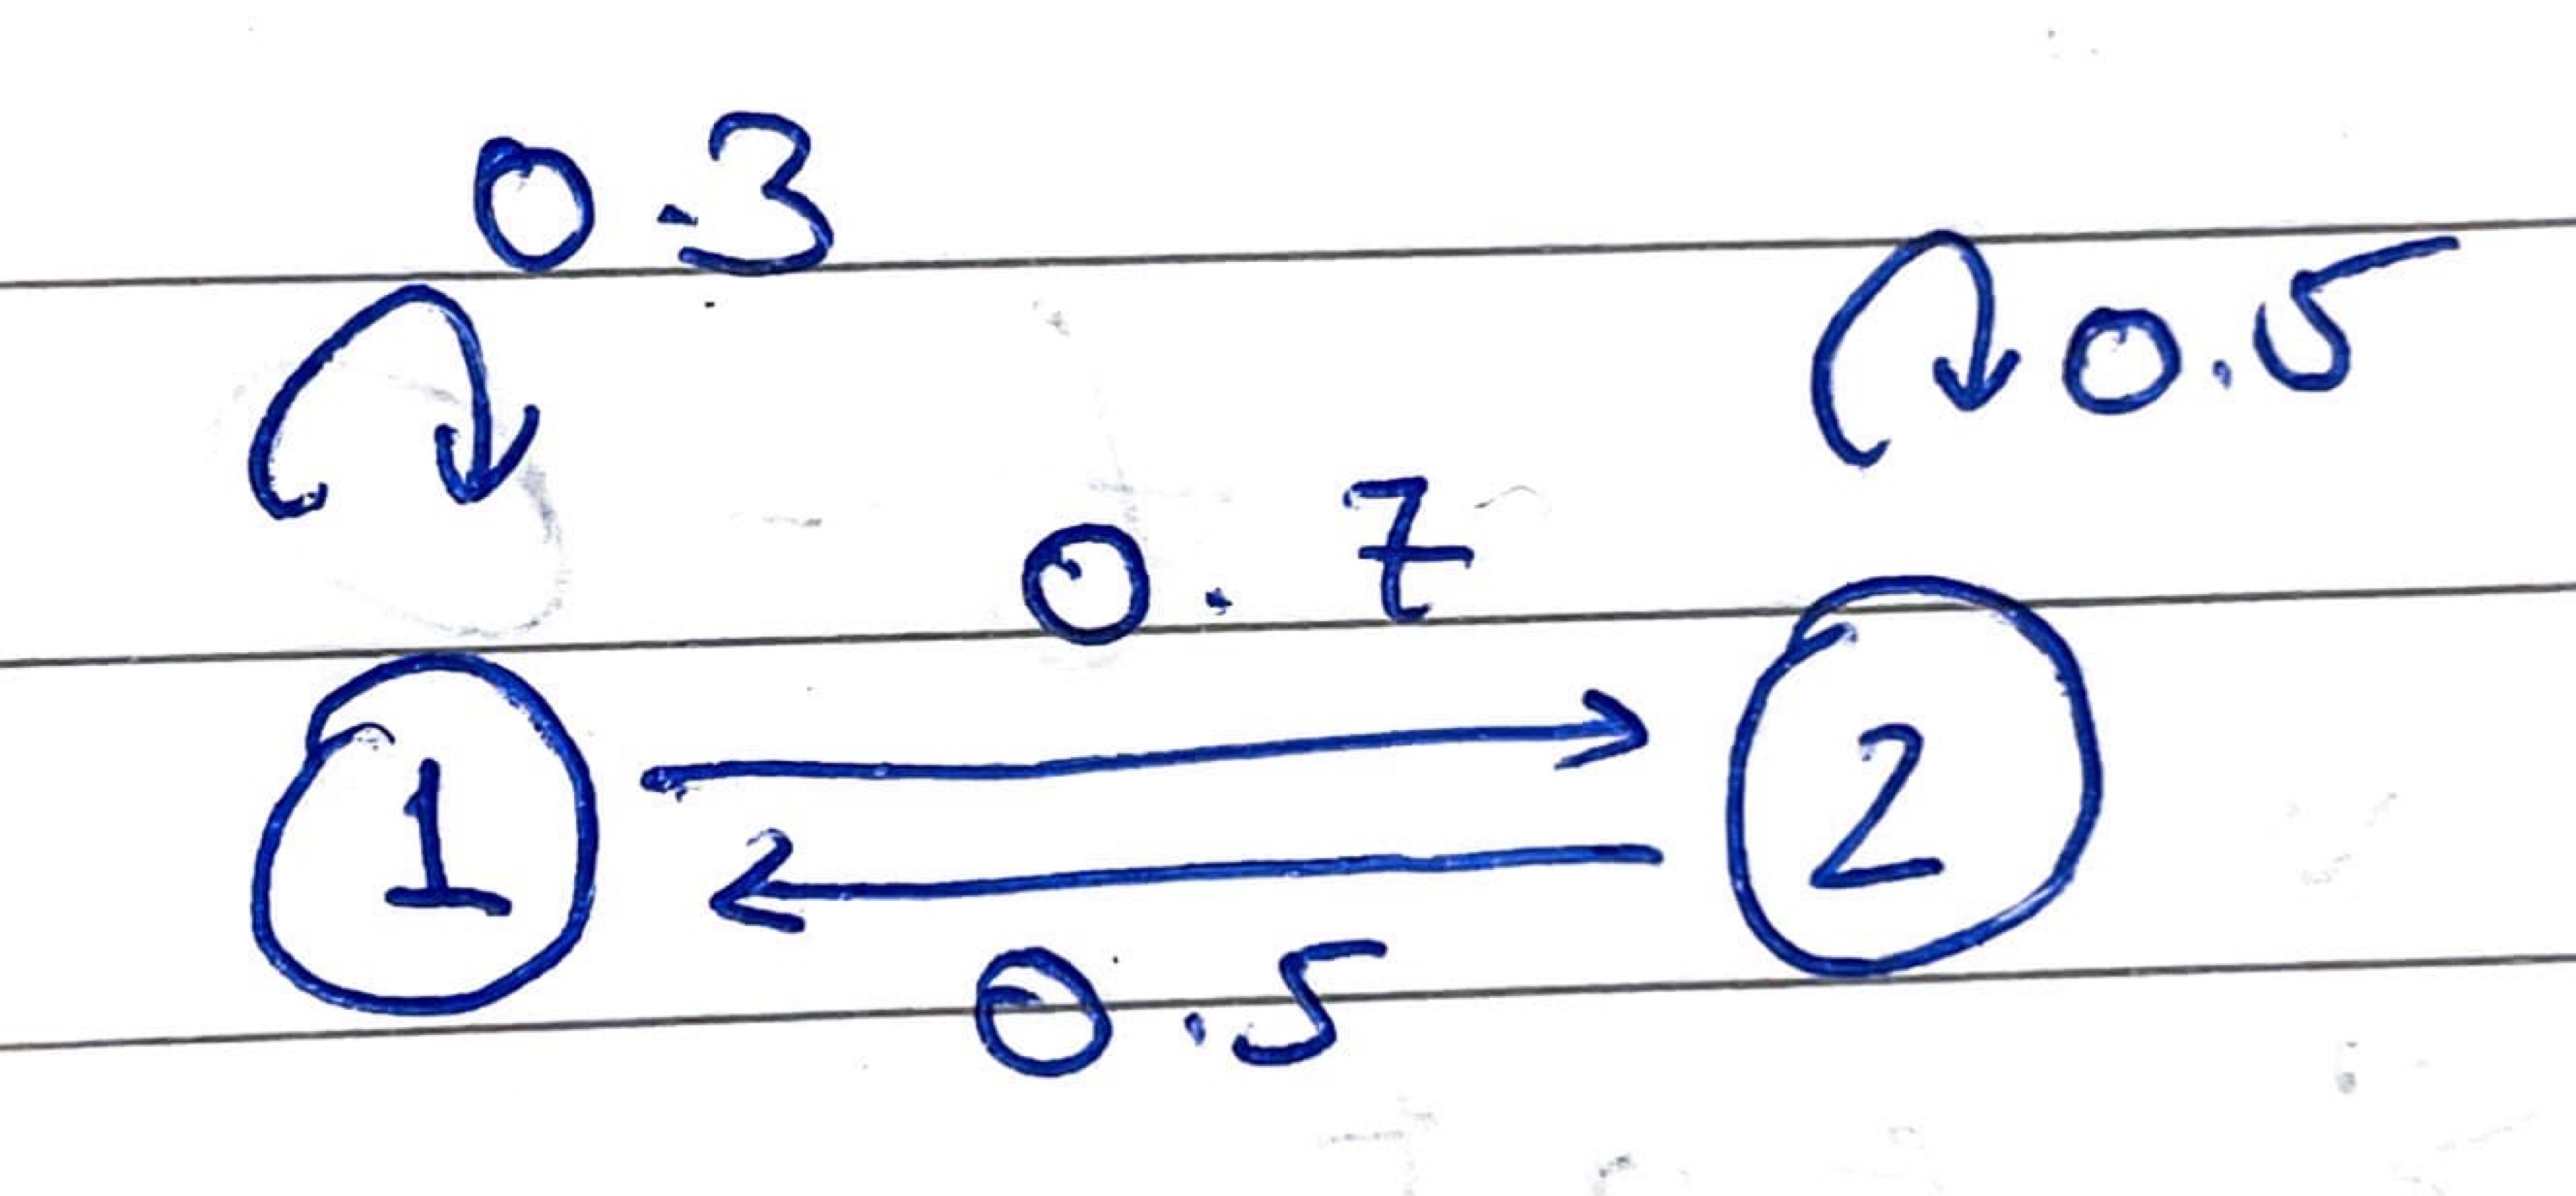 0.3
0.5
0.7
1
2
0.5